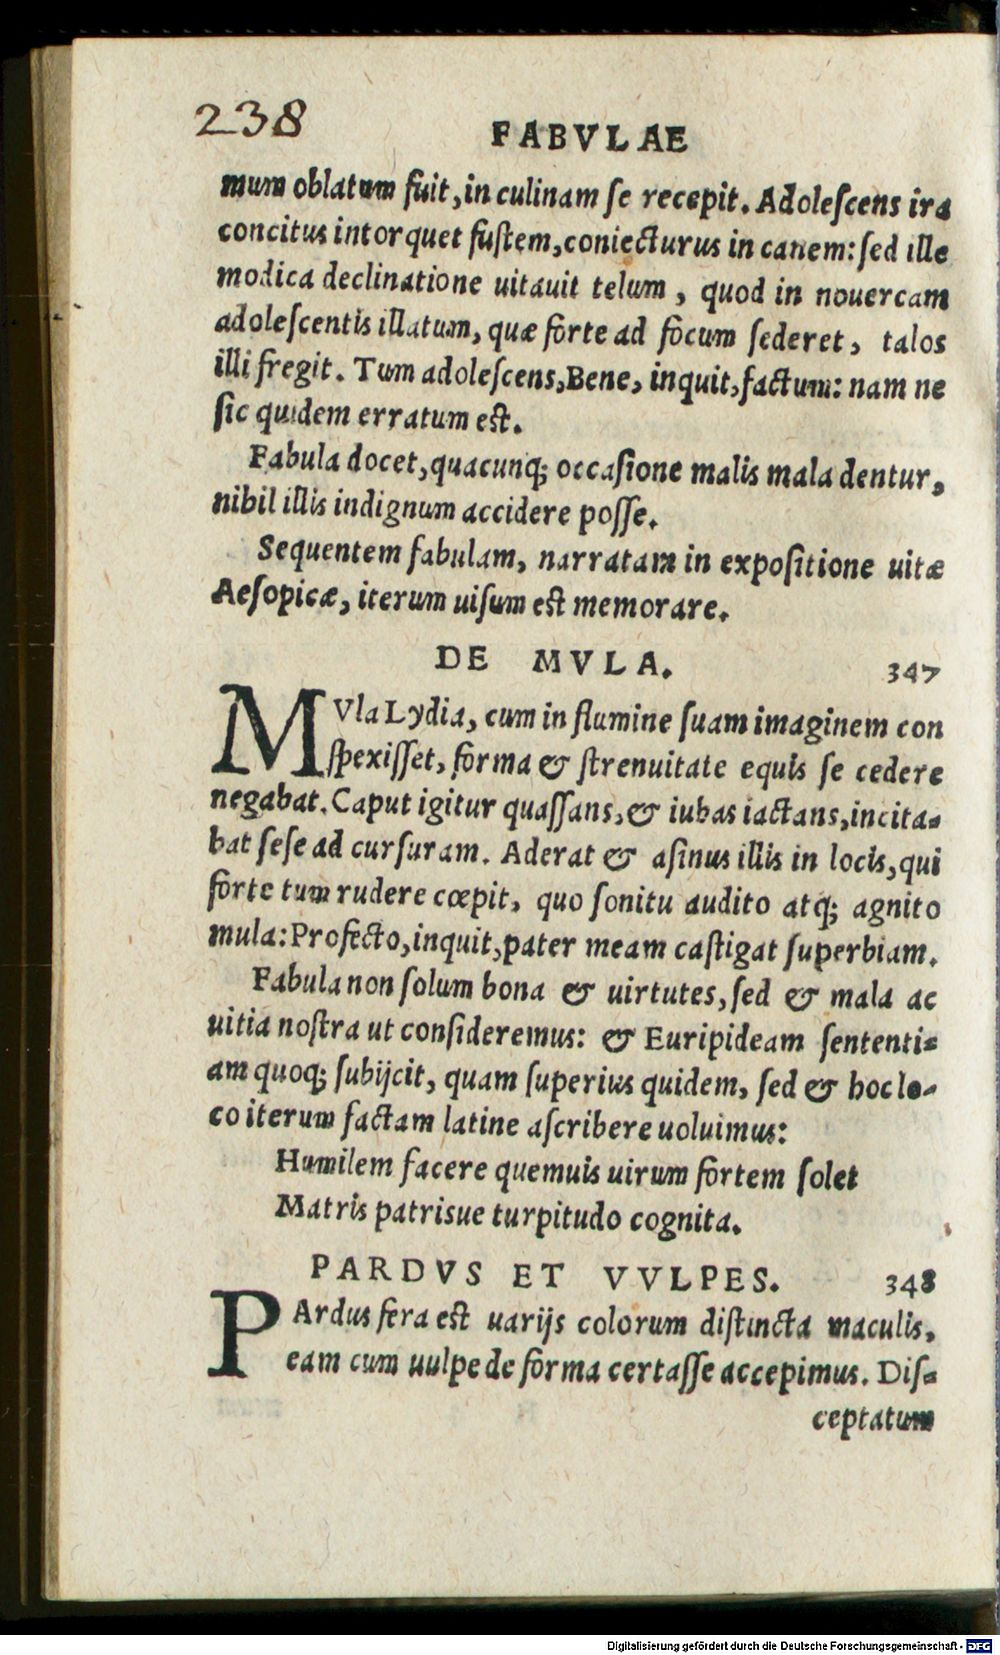 238
FABVLAE
mum oblatum fuit, in culinam ſe recepit. Adoleſcens ira
concitus intorquet fuſtem, coniecturus in canem: ſed ille
modica declinatione uitauit telum, quod in nouercam
adoleſcentis illatum, quæ forte ad focum ſederet, talos
illi fregit. Tum adoleſcens, Bene, inquit, factum: nam ne
ſic quidem erratum eſt.
Fabula docet, quacunq; occaſione malis mala dentur,
nihil illis indignum accidere poſſe.
Sequentem fabulam, narratam in expoſitione uitæ
Aeſopicæ, iterum uiſum eſt memorare.
DE MVLA. 347
MVla Lydia, cum in flumine ſuam imaginem con
ſpexiſſet, forma & ſtrenuitate equis ſe cedere
negabat. Caput igitur quaſſans, & iubas iactans, incita-
bat ſeſe ad curſuram. Aderat & aſinus illis in locis, qui
forte tum rudere cœpit, quo ſonitu audito atq; agnito
mula: Profecto, inquit, pater meam caſtigat ſuperbiam.
Fabula non ſolum bona & uirtutes, ſed & mala ac
uitia noſtra ut conſideremus: & Euripideam ſententi-
am quoq; ſubijcit, quam ſuperius quidem, ſed & hoc lo-
co iterum factam latine aſcribere uoluimus:
Humilem facere quemuis uirum fortem ſolet
Matris patrisue turpitudo cognita.
PARDVS ET VVLPES. 348
PArdus fera eſt uarijs colorum diſtincta maculis,
eam cum uulpe de forma certaſſe accepimus. Diſ-
ceptatum
Digitalisierung gefördert durch die Deutsche Forschungsgemeinschaft - DFG